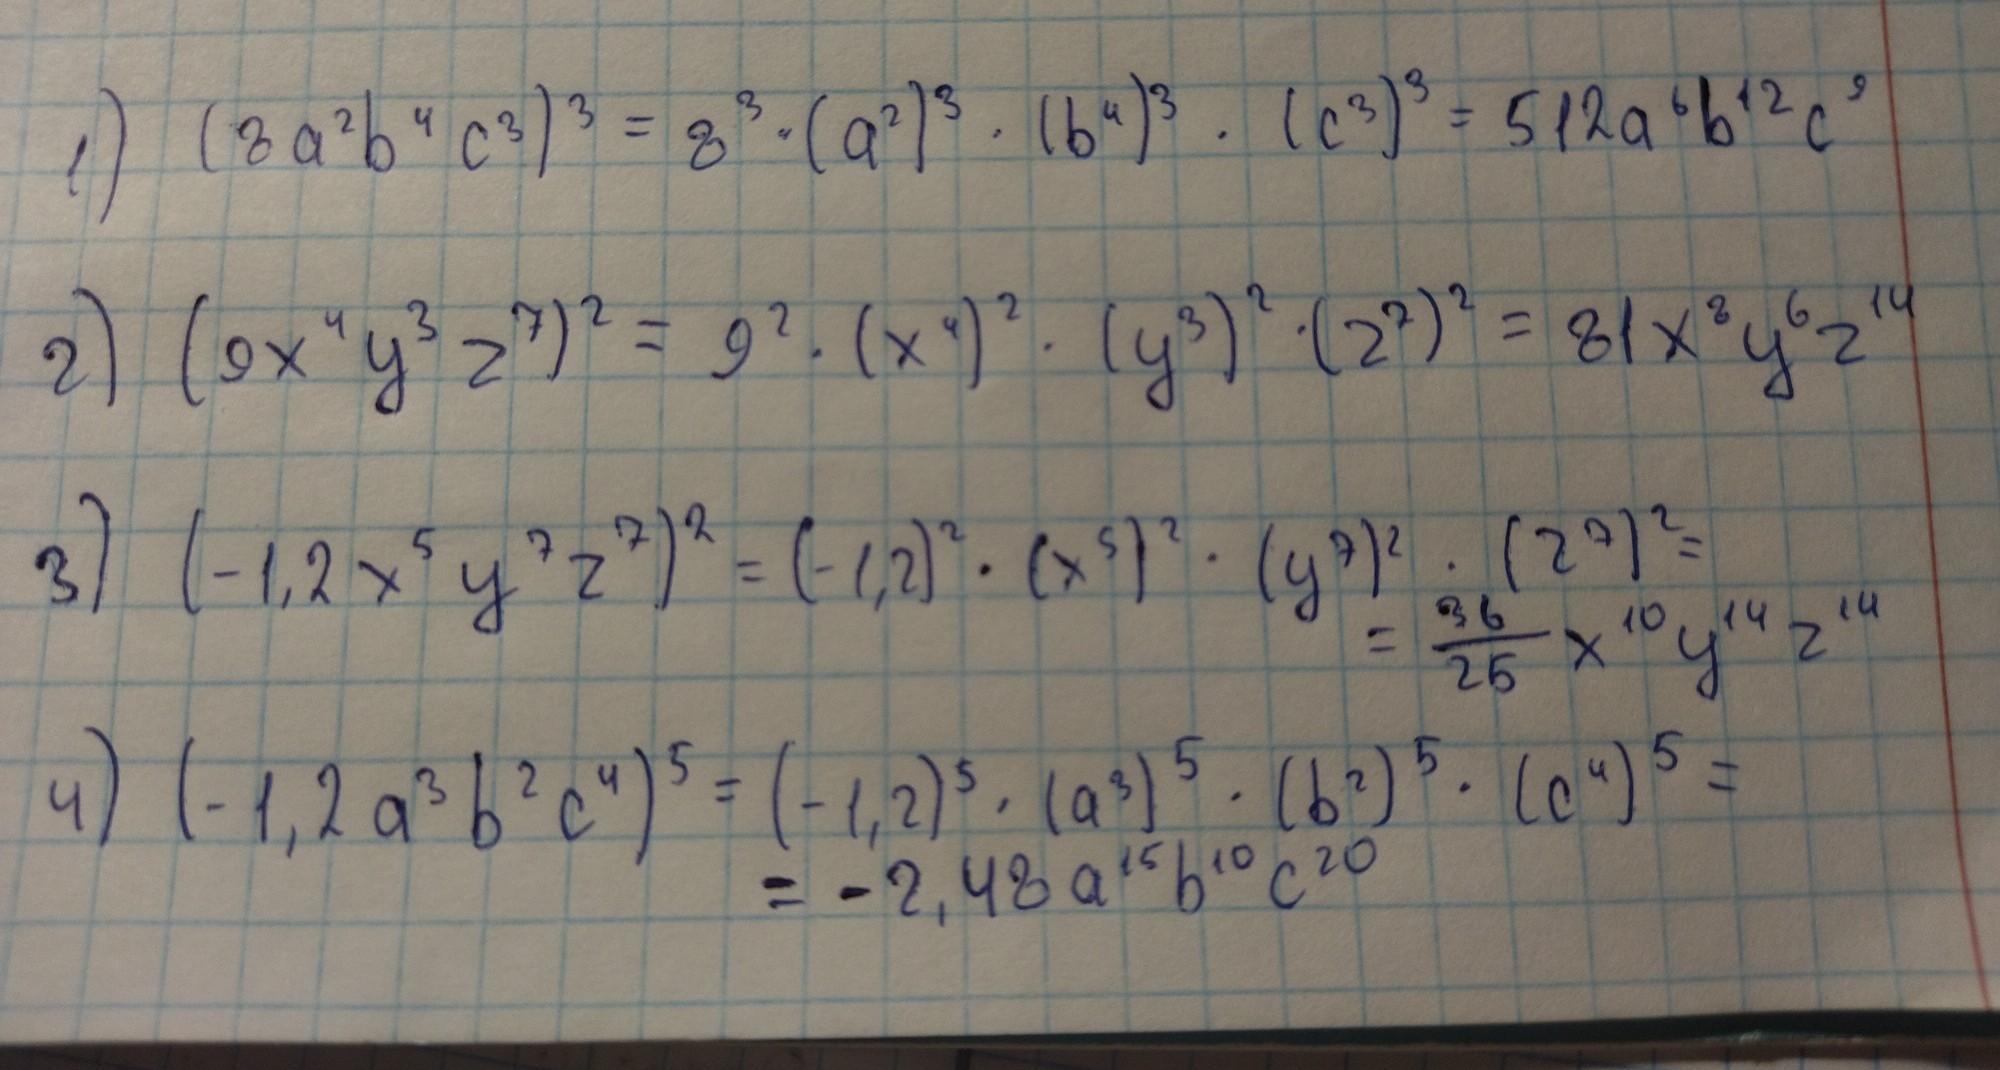 1) (8a²b⁴c³)³ = 8³·(a²)³·(b⁴)³·(c³)³ = 512a⁶b¹²c⁹
2) (9x⁴y³z⁷)² = 9²·(x⁴)²·(y³)²·(z⁷)² = 81x⁸y⁶z¹⁴
3) (-1,2x⁵y⁷z⁷)² = (-1,2)²·(x⁵)²·(y⁷)²·(z⁷)² =
= 36/25 x¹⁰y¹⁴z¹⁴
4) (-1,2a³b²c⁴)⁵ = (-1,2)⁵·(a³)⁵·(b²)⁵·(c⁴)⁵ =
= -2,48a¹⁵b¹⁰c²⁰